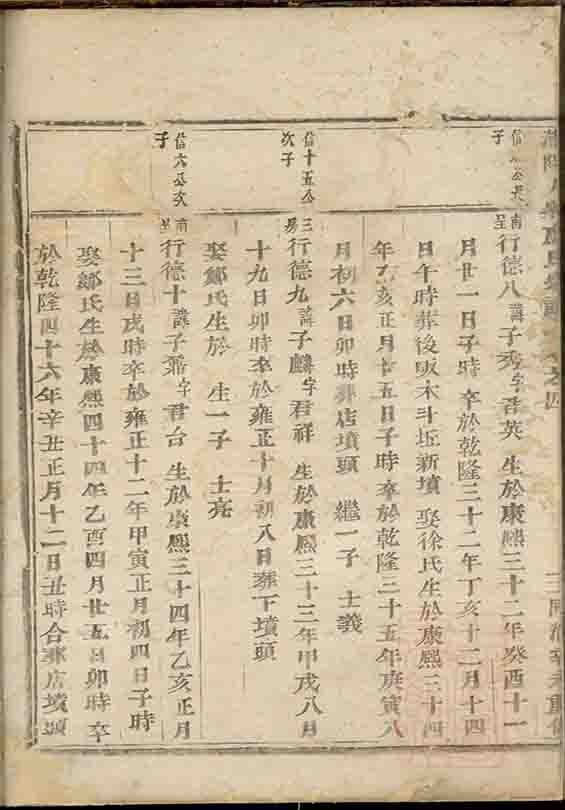 信公長子
南呈行德八諱子秀字君英生於康熙三十二年癸酉十一
月廿一日子時卒於乾隆三十二年丁亥十二月十四
日午時葬後坂木斗坵新墳娶徐氏生於康熙三十四
年乙亥正月廿五日子時卒於乾隆三十五年庚寅八
月初六日卯時葬店墳頭繼一子士義
信十五公次子
三易行德九諱子麟字君祥生於康熙三十三年甲戌八月
十九日卯時卒於雍正十月初八日葬下墳頭
娶鄒氏生於生一子士亮
信六公次子
南呈行德十諱子鼐字君台生於康熙三十四年乙亥正月
十三日戌時卒於雍正十二年甲寅正月初四日子時
娶鄒氏生於康熙四十四年乙酉四月廿五日卯時卒
於乾隆四十六年辛丑正月十二日丑時合葬店墳頭